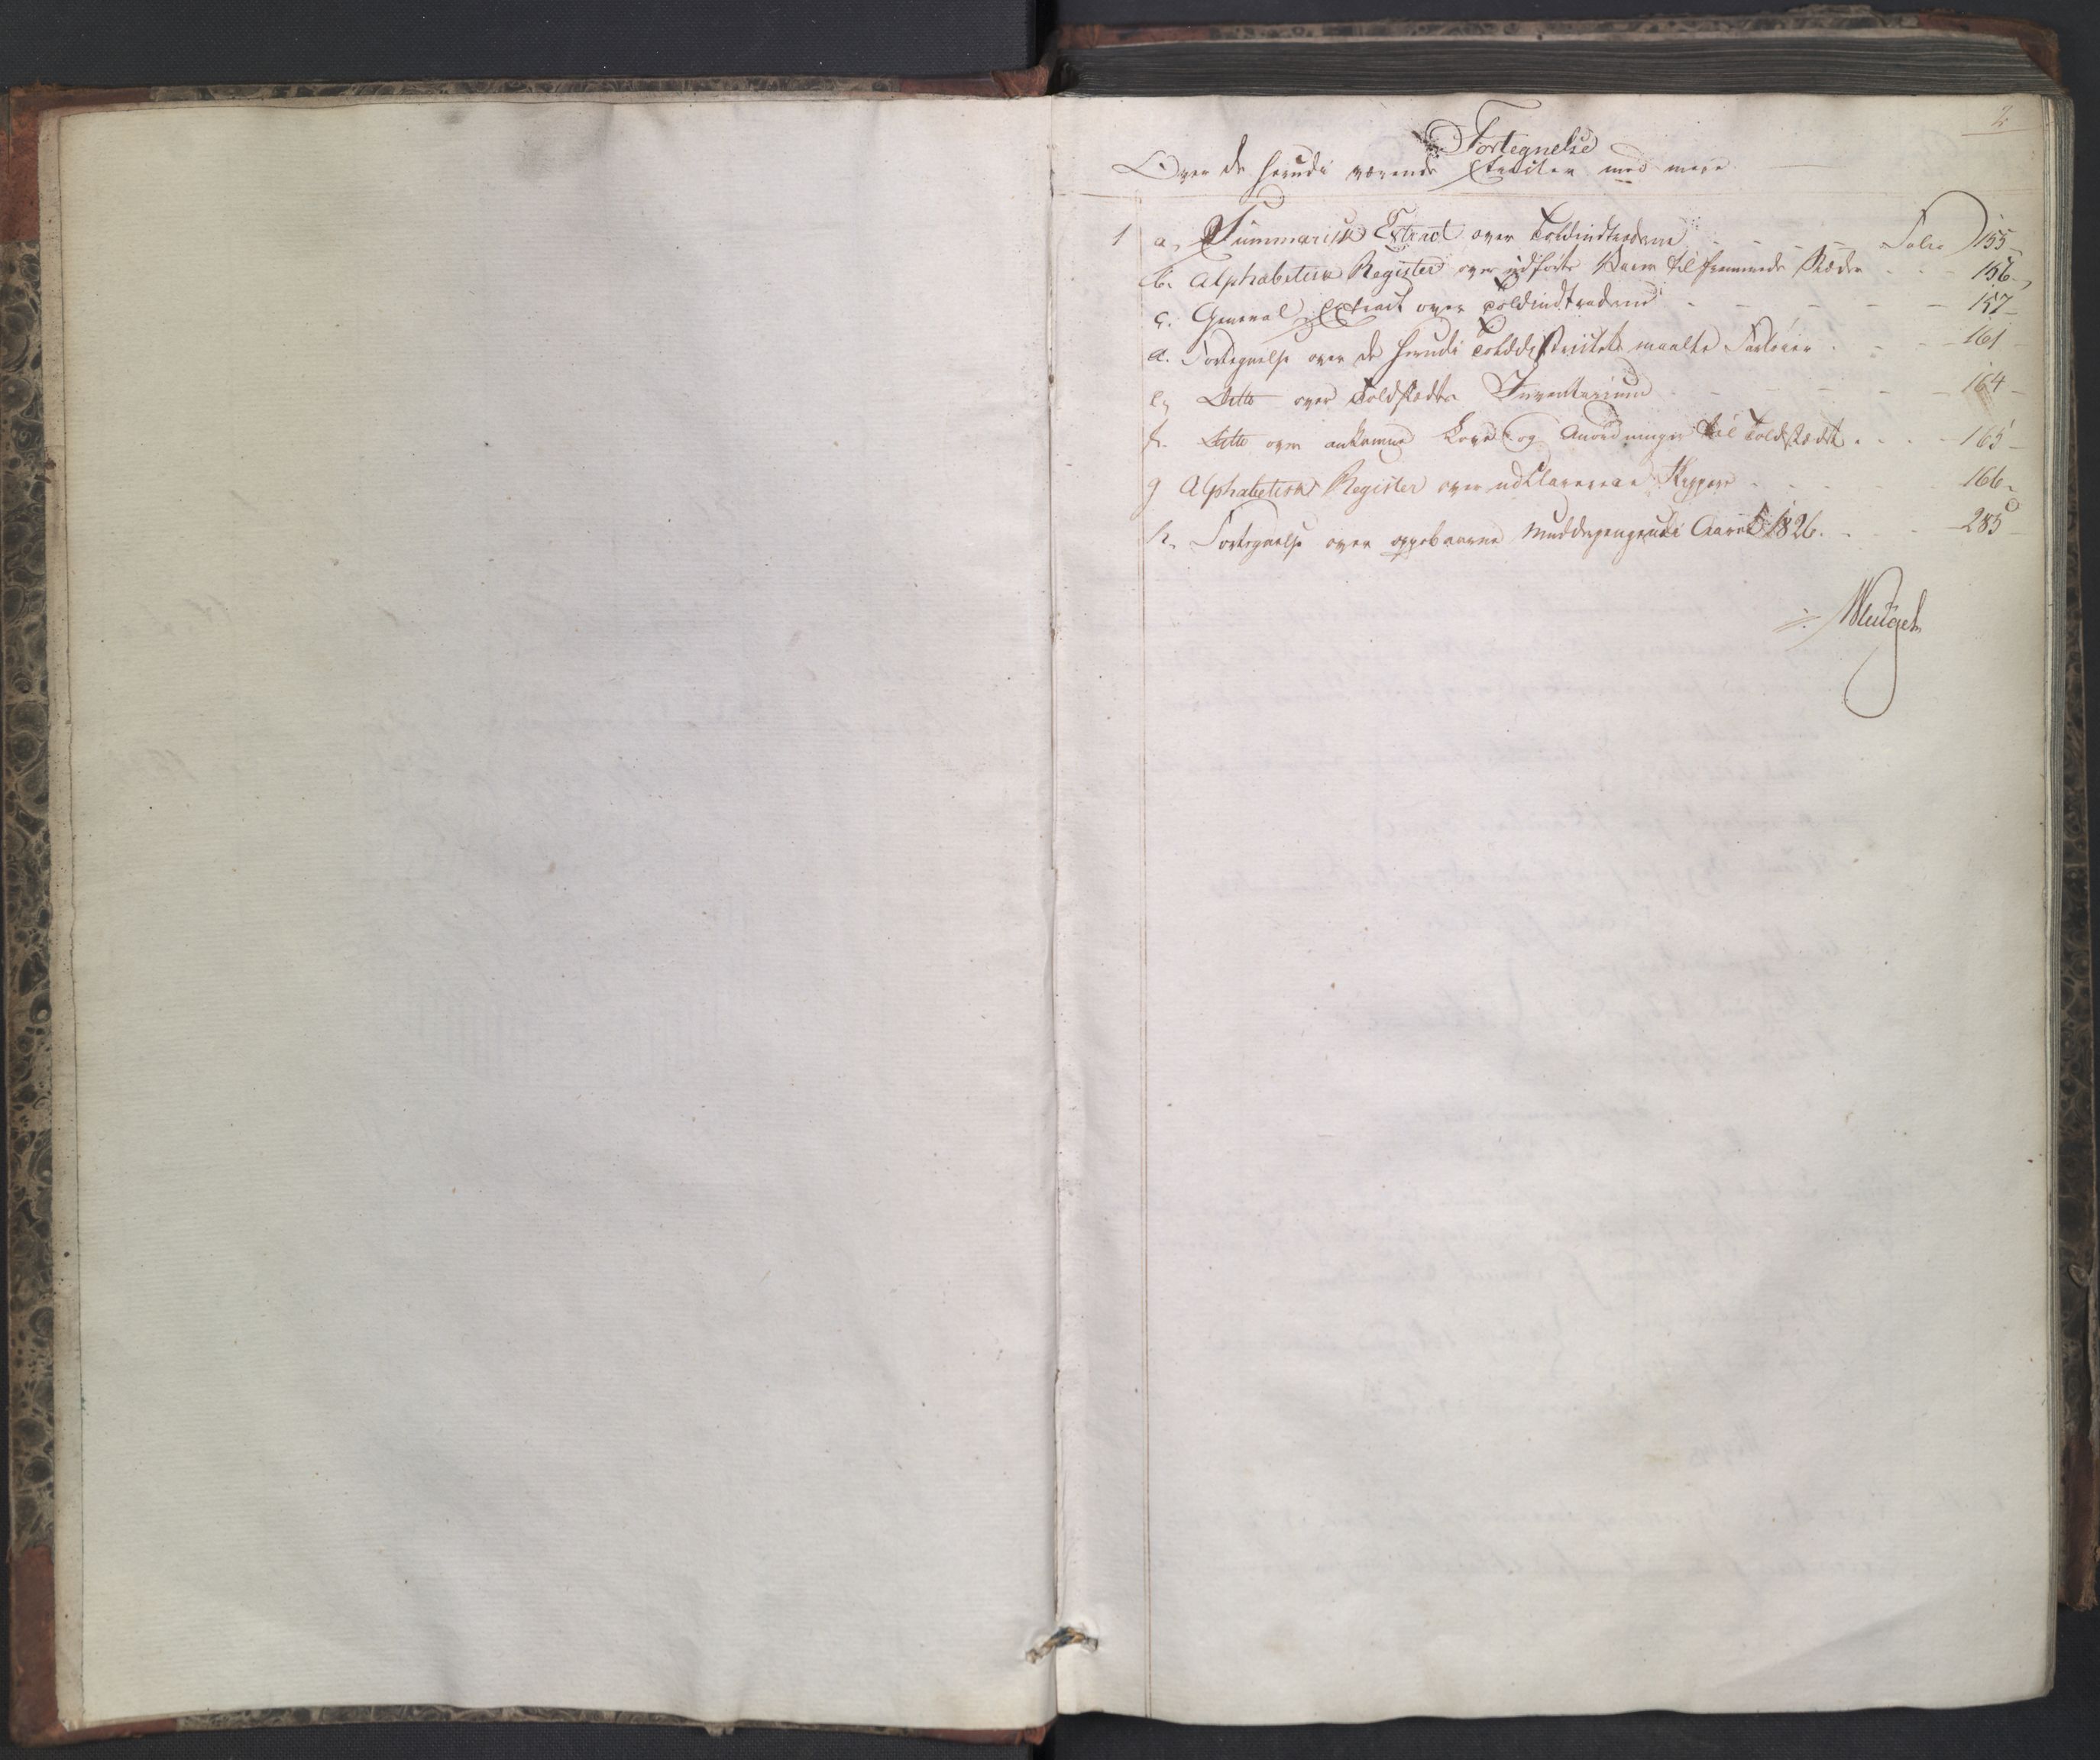 2
Fortegnelse
Over de herudi værende Extracter med mere
1 a, Summarisk Extract over Toldindtræderne - - - - Folio 155 -
b. Alphabetisk Register over udførte Varer til fremmede Stæder - - - 156 -
c. General Extract over Toldindtræderne - - - - - - 157 -
d. Fortegnelse over de herudi Tolddistrictet maalte Fartøier - - - 161 -
e, Ditto over Toldstedets Inventarium - - - - - - 164 -
f. Ditto over ankomne Love og Anordninger til Toldstedet - - - - 165 -
g Alphabetisk Register over udklarerede Skippere - - - - 166 -
h. Fortegnelse over oppebaarne Mudderpenge udi Aaret 1826. - - - 285 -